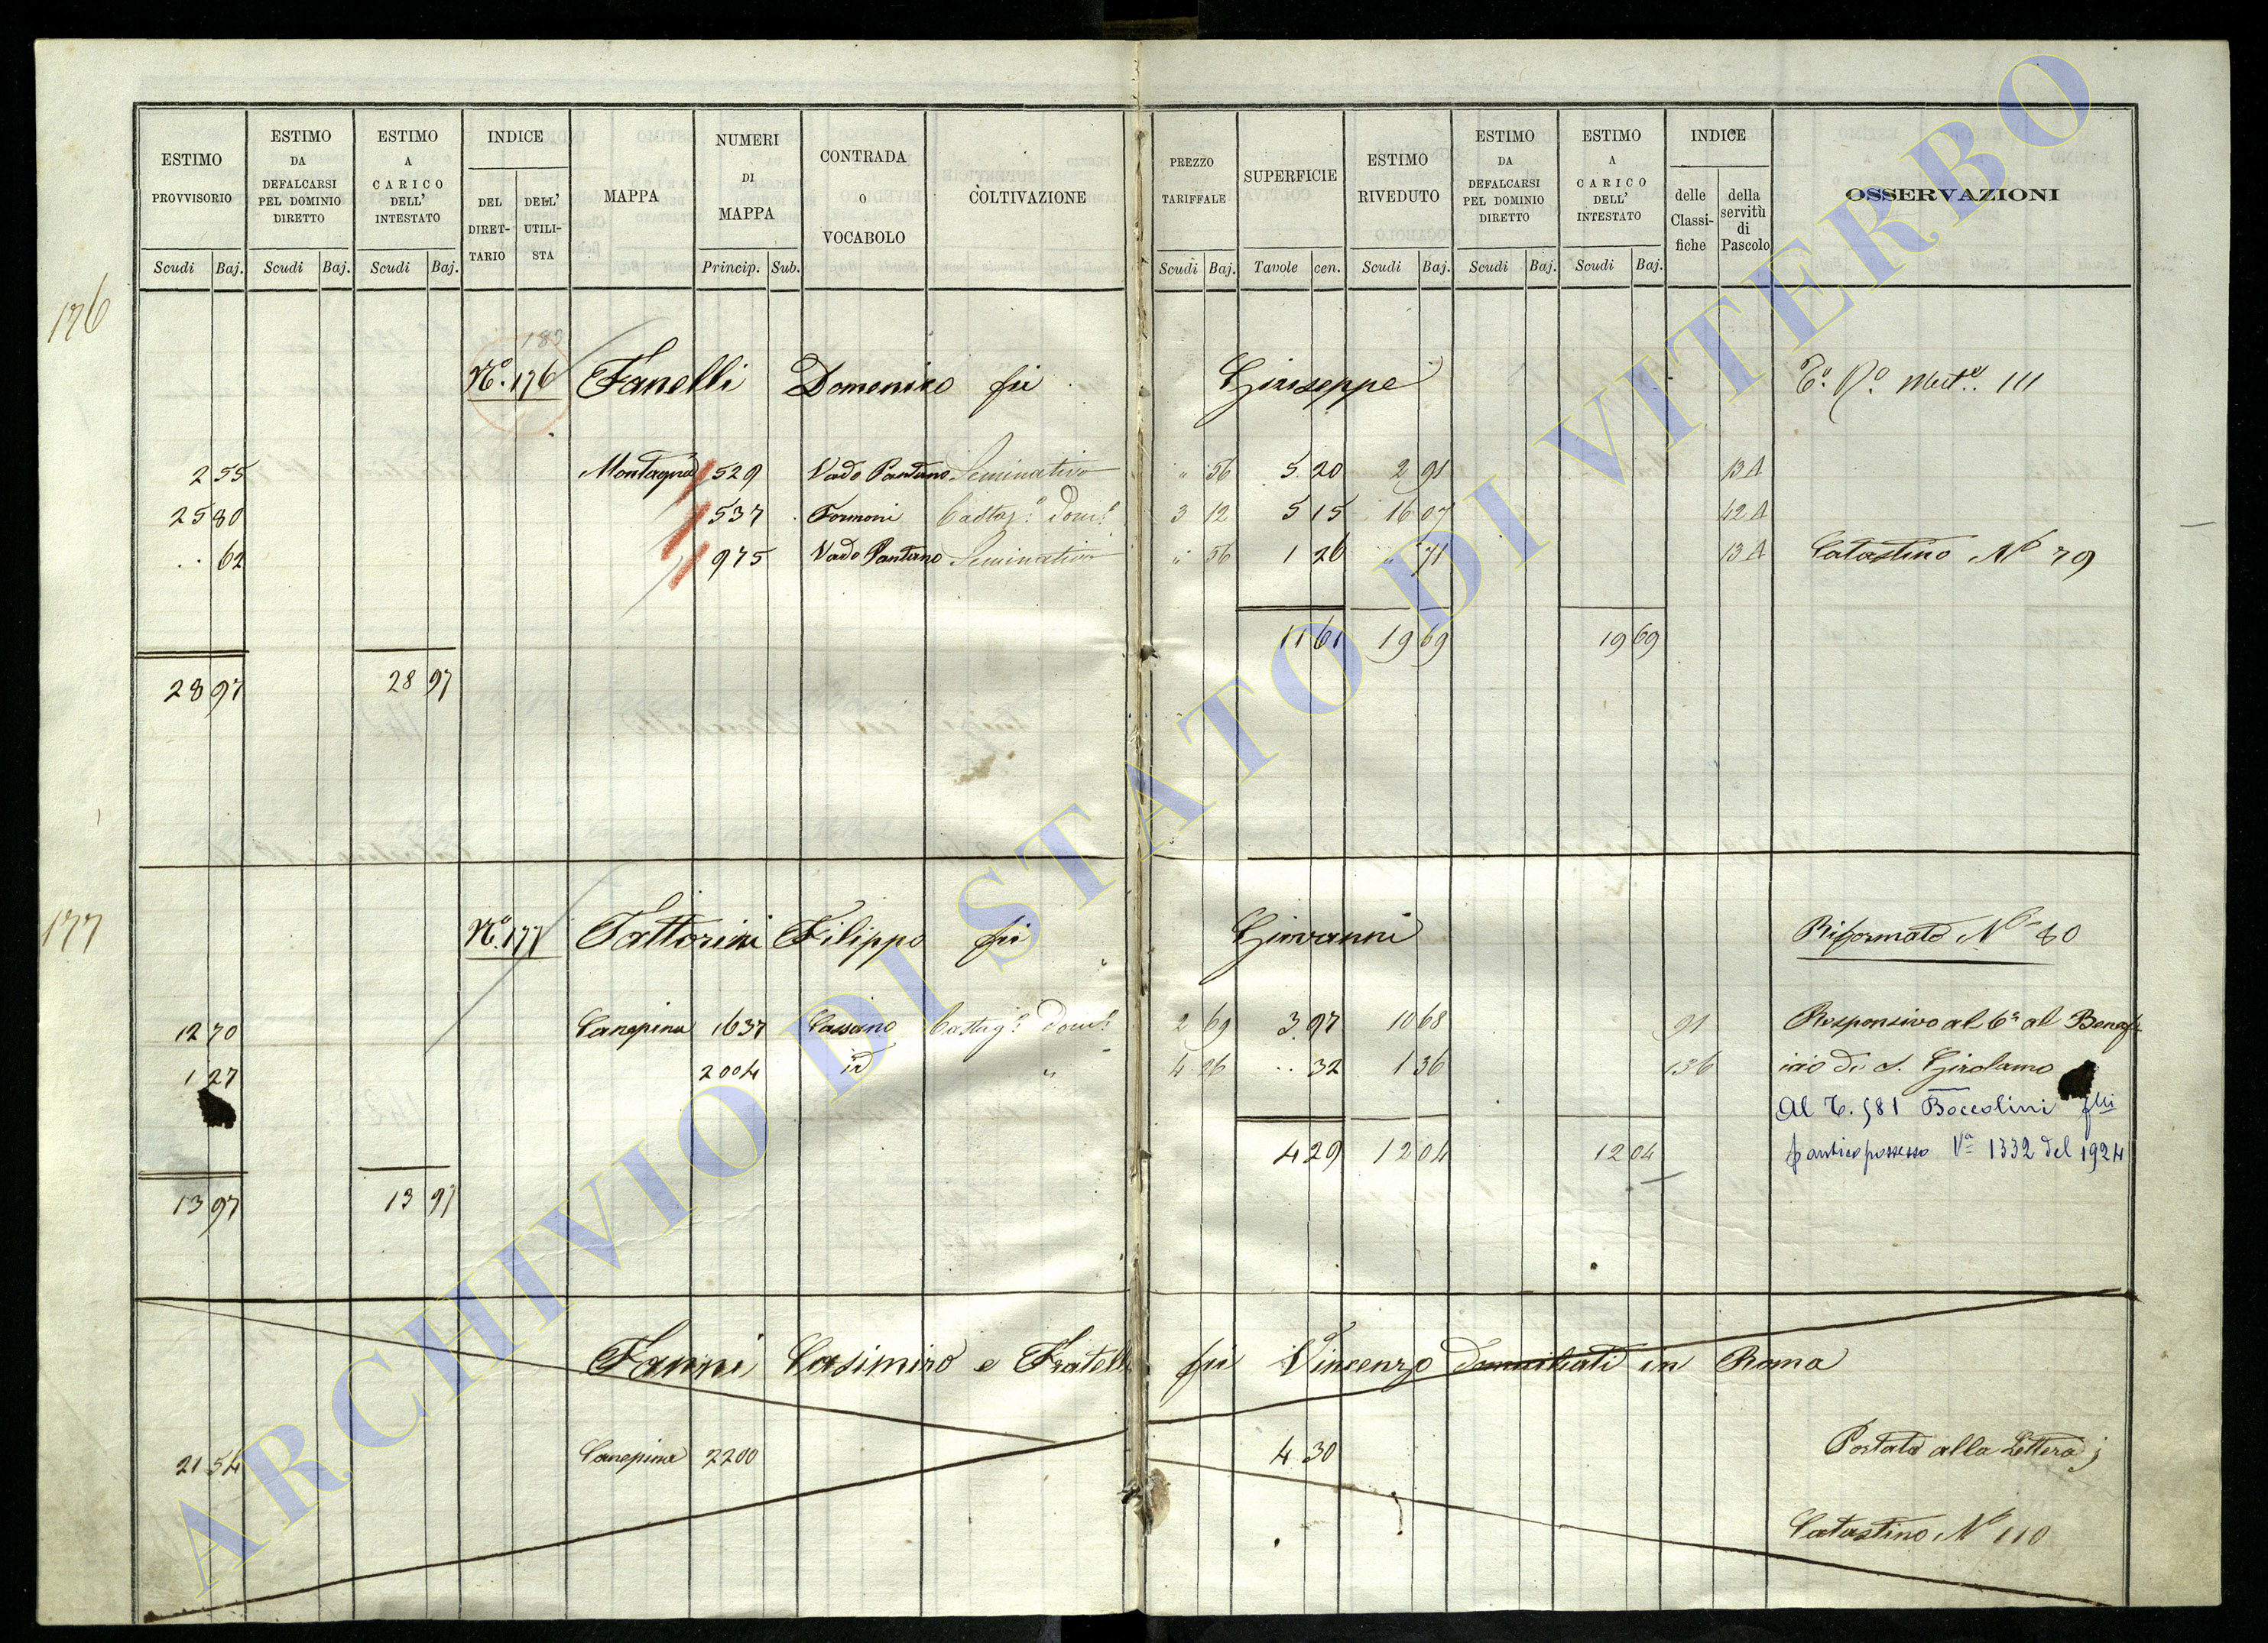 ESTIMO PROVVISORIO Scudi Baj.
ESTIMO DA DEFALCARSI PEL DOMINIO DIRETTO Scudi Baj.
ESTIMO A CARICO DELL' INTESTATO Scudi Baj.
INDICE DEL DIRETTARIO DELL' UTILISTA
MAPPA
NUMERI DI MAPPA Princip. Sub.
CONTRADA O VOCABOLO
COLTIVAZIONE
PREZZO TARIFFALE Scudi Baj.
SUPERFICIE Tavole cen.
ESTIMO RIVEDUTO Scudi Baj.
ESTIMO DA DEFALCARSI PEL DOMINIO DIRETTO Scudi Baj.
ESTIMO A CARICO DELL' INTESTATO Scudi Baj.
INDICE delle Classifiche della servitù di Pascolo
OSSERVAZIONI
176
Nº. 176 Fanelli Domenico fu Giuseppe 111
2 55 Montagna 529 Vado Pantano Seminativo " 56 5 20 2 91 13 A
25 80 537 Formoni Castag.º dom.º 3 12 5 15 16 07 42 A
.. 62 975 Vado Pantano Seminativo " 56 1 26 " 71 13 A Catastino Nº 79
11 61 19 69 19 69
28 97 28 97
177
Nº. 177 Fattorini Filippo fu Giovanni Riformato Nº 80
12 70 Canepina 1637 Cassano Castag.º dom.º 2 69 3 97 10 68 91 Responsivo al 6º al Benef
1 27 2004 id " 4 26 .. 32 1 36 136 icio di S. Girolamo
Al T. 581 Boccolini flli
4 29 12 04 12 04 p antico possesso Vª 1332 del 1924
13 97 13 97
Fanni Casimiro e Fratelli fu Vincenzo domiciliati in Roma
21 54 Canepina 2200 4 30 Portata alla Lettera j
Catastino Nº 110
ARCHIVIO DI STATO DI VITERBO